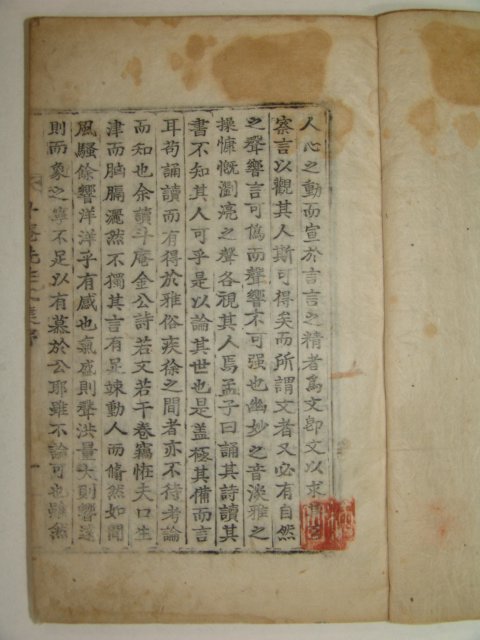 人心之動而宣於言言之精者爲文卽文以求
察言以觀其人斯可得矣而所謂文者又必有自然
之聲響言可僞而聲響不可强也幽妙之音淡雅之
操慷慨瀏亮之聲各視其人焉孟子曰誦其詩讀其
書不知其人可乎是以論其世也是盖極其備而言
耳苟誦讀而有得於雅俗疾徐之間者亦不待考論
而知也余讀斗庵金公詩若文若干卷竊恠夫口生
津而胸膈灑然不獨其言有足竦動人而翛然如聞
風騷餘響洋洋乎有感也氣盛則聲洪量大則響遠
則而象之寧不足以有慕於公耶雖不論可也雖然
斗庵先生文集序